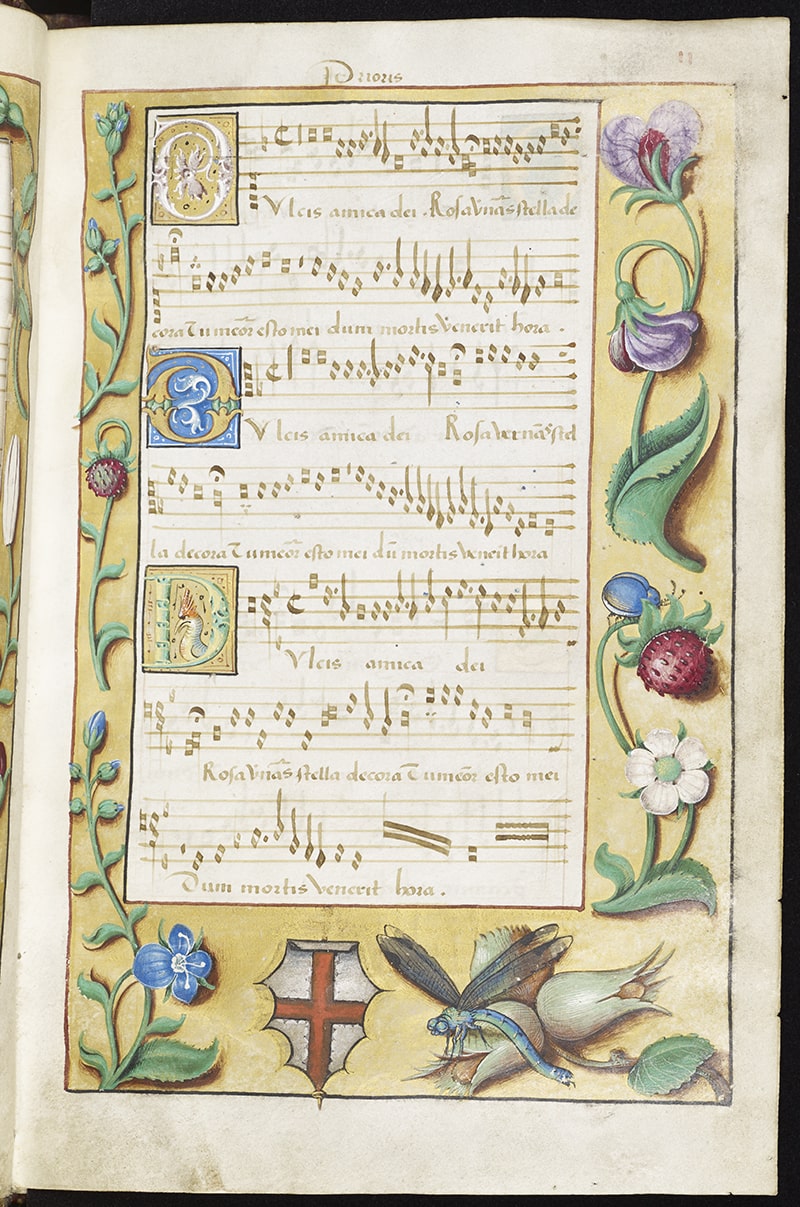 Prioris
DVlcis amica dei . Rosa vnãs stella de
cora Tu meor̃ esto mei dum mortis venerit hora .
DVlcis amica dei Rosa vernãs stel
la decora Tu meor̃ esto mei dũ mortis veneit hora
DVlcis amica dei
Rosa vnãs stella decora Tu meor̃ esto mei
Dum mortis venerit hora .